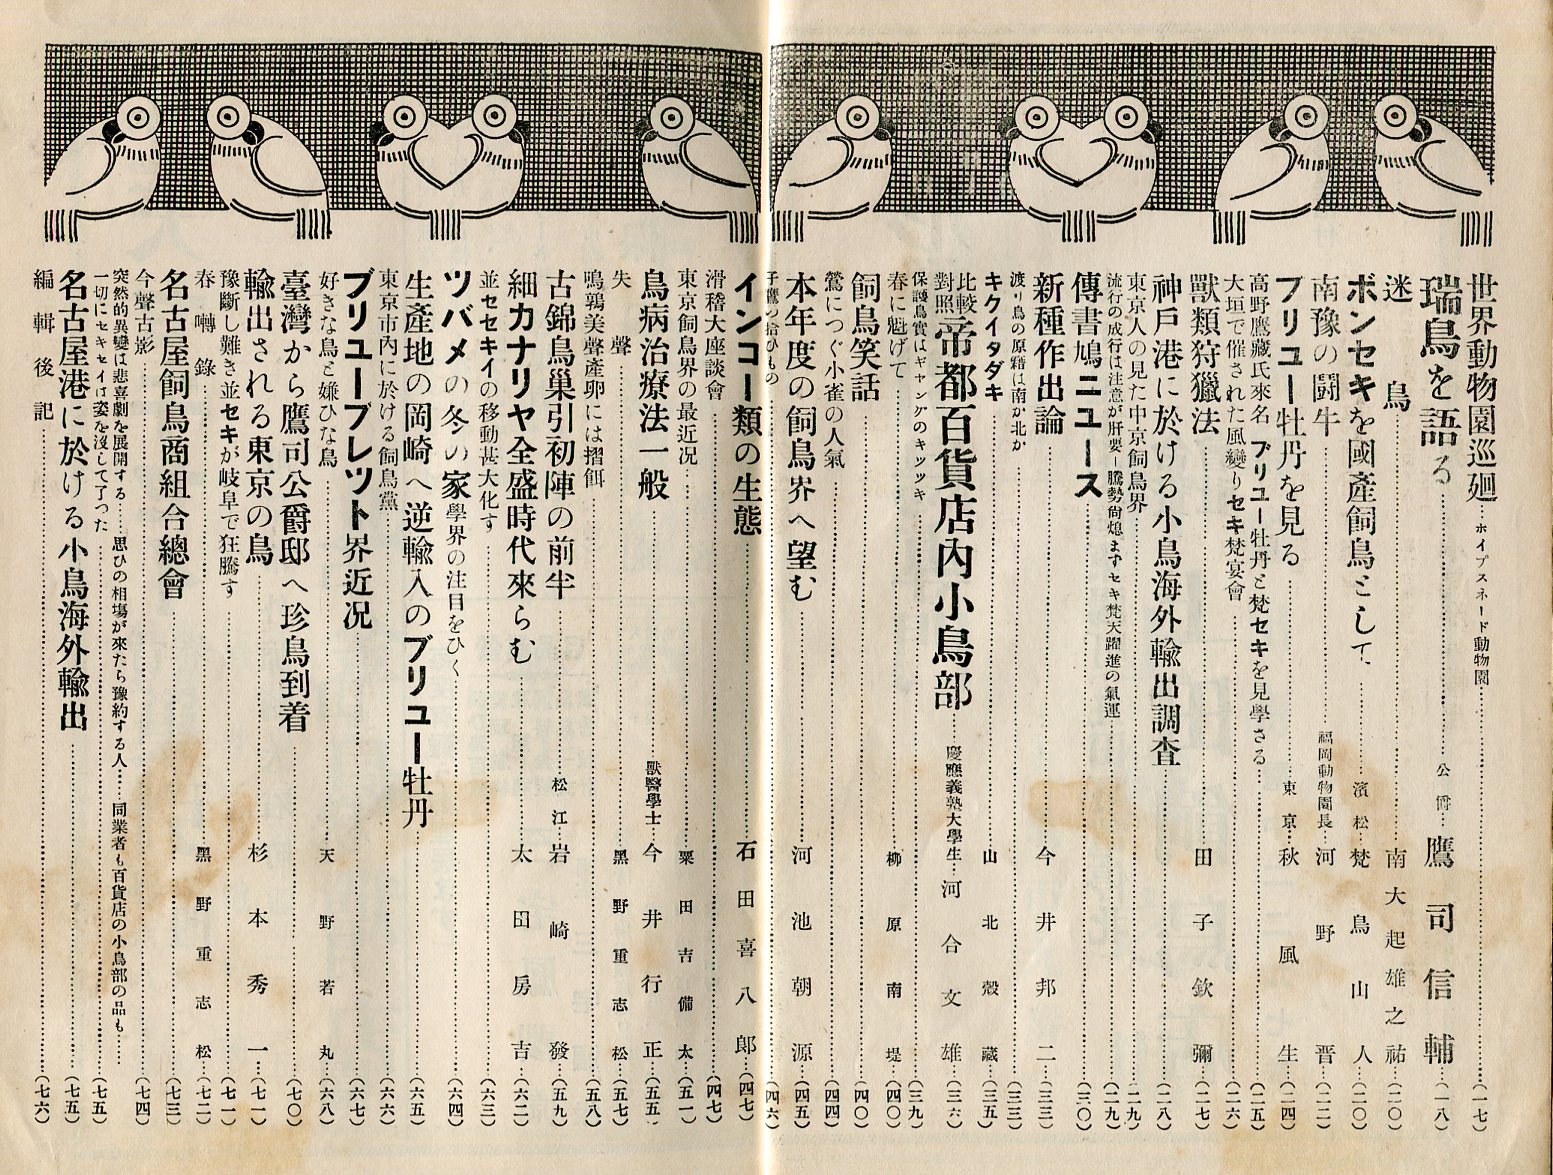 世界動物園巡廻…ホイプスネード動物園…(一七)
瑞鳥を語る…公爵 鷹司信輔…(一八)
迷鳥…南大起雄之祐…(二〇)
ボンセキを國産飼鳥として…濱松 梵鳥山人…(二〇)
南豫の闘牛…福岡動物園長 河野晋…(二二)
ブリユー牡丹を見る…東京 秋風生…(二四)
高野鷹藏氏來名 ブリユー牡丹と梵セキを見學さる…(二五)
大垣で催された風變りセキ梵宴會…(二六)
獸類狩獵法…田子欽彌…(二七)
神戸港に於ける小鳥海外輸出調査…(二八)
東京人の見た中京飼鳥界…(二九)
流行の成行は注意が肝要―騰勢尙熄まずセキ梵天躍進の氣運…(二九)
傳書鳩ニユース…(三〇)
新種作出論…今井邦二…(三三)
渡り鳥の原籍は南か北か…(三三)
キクイタダキ…山北殻藏…(三五)
比較對照 帝都百貨店內小鳥部…慶應義塾大學生 河合文雄…(三六)
保護鳥實はギャングのキツツキ…(三九)
春に魁けて…柳原南堤…(四〇)
飼鳥笑話…(四〇)
鶯につぐ小雀の人氣…(四四)
本年度の飼鳥界へ望む…河池朝源…(四五)
子鷹の拾ひもの…(四六)
インコー類の生態…石田喜八郎…(四七)
滑稽大座談會…(四七)
東京飼鳥界の最近況…栗田吉備太…(五一)
鳥病治療法一般…獸醫學士 今井行正…(五五)
失聲…黑野重志松…(五七)
鳴鶉美聲產卵には摺餌…(五八)
古錦鳥巢引初陣の前半…松江 岩崎發…(五九)
細カナリヤ全盛時代來らむ…太田房吉…(六二)
並セセキイの移動甚大化す…(六三)
ツバメの冬の家 學界の注目をひく…(六四)
生産地の岡崎へ逆輸入のブリユー牡丹…(六五)
東京市內に於ける飼鳥黨…(六六)
ブリユーブレツト界近况…(六七)
好きな鳥と嫌ひな鳥…天野若丸…(六八)
臺灣から鷹司公爵邸へ珍鳥到着…(七〇)
輸出される東京の鳥…杉本秀一…(七一)
豫斷し難き並セキが岐阜で狂騰す…(七一)
春囀錄…黑野重志松…(七二)
名古屋飼鳥商組合總會…(七三)
今聲古影…(七四)
突然的異變は悲喜劇を展開する……思ひの相場が來たら豫約する人……同業者も百貨店の小鳥部の品も……
一切にセキセイは姿を沒して了つた…(七五)
名古屋港に於ける小鳥海外輸出…(七五)
編輯後記…(七六)